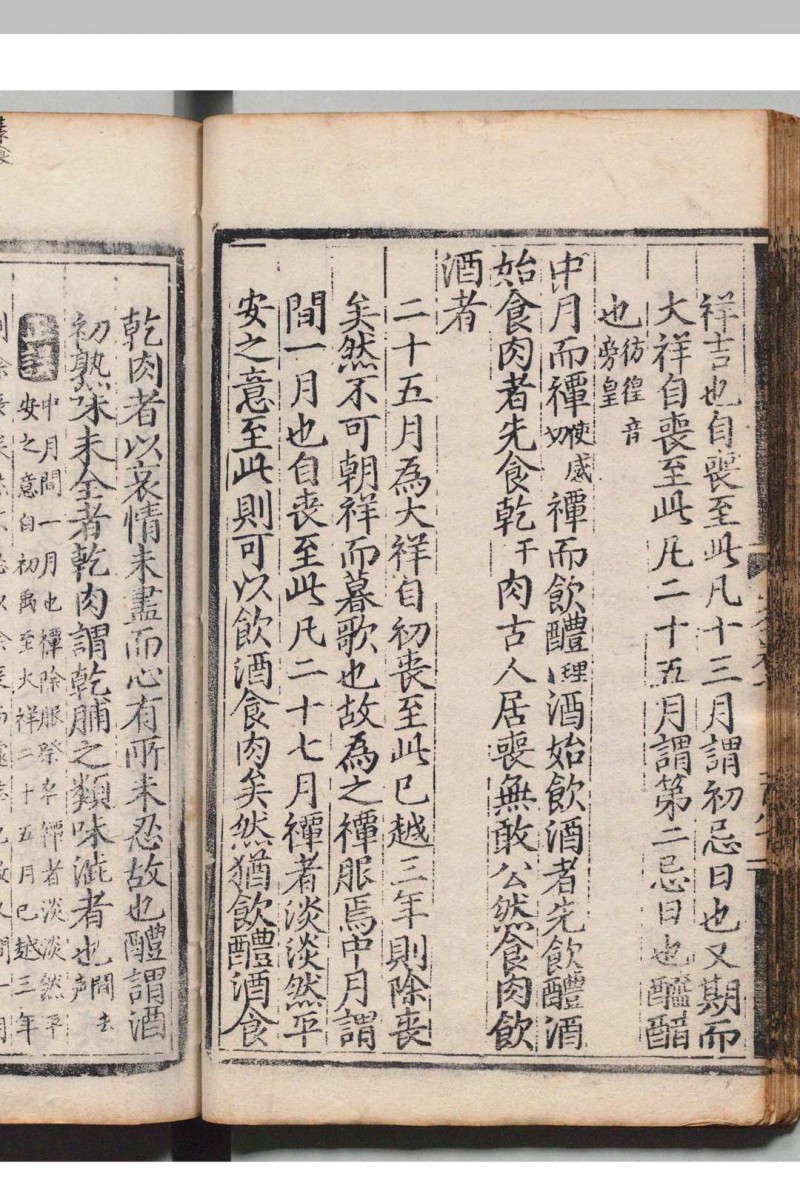 祥吉也自喪至此凡十三月謂初忌日也又期而
大祥自喪至此凡二十五月謂第二忌日也醯醋
也彷徨音旁皇
中月而禫徒感切禫而飲醴理酒始飲酒者先飲醴酒
始食肉者先食乾干肉古人居喪無敢公然食肉飲
酒者
二十五月為大祥自初喪至此已越三年則除喪
矣然不可朝祥而暮歌也故為之禫服焉中月謂
間一月也自喪至此凡二十七月禫者淡淡然平
安之意至此則可以飲酒食肉矣然猶飲醴酒食
乾肉者以哀情未盡而心有所未忍故也醴謂酒
初熟味未全者乾肉謂乾脯之類味澁者也間去声
中月間一月也禫除服祭名禫者淡淡然平
安之意自初喪至大祥二十五月已越三年